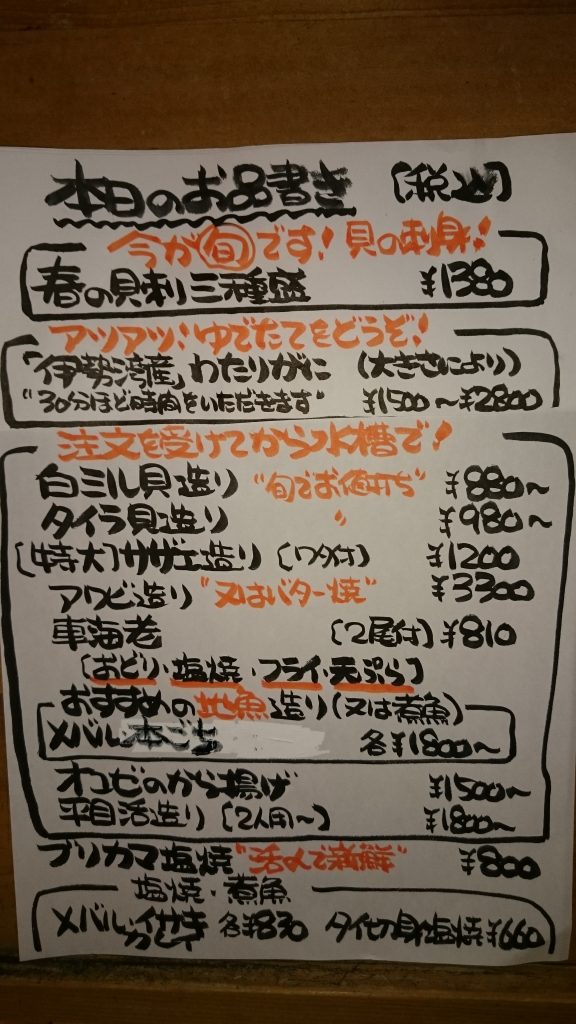 本日のお品書き [税込]
今が旬です！貝の刺身！
春の貝刺三種盛 ¥1380
アツアツ！ゆでたてをどうぞ！
「伊勢湾産」わたりがに (大きさにより)
"30分ほど時間をいただきます" ¥1500〜¥2800
注文を受けてから水槽で！
白ミル貝造り "旬でお値打ち" ¥880〜
タイラ貝造り 〃 ¥980〜
[特大]サザエ造り [ワタ付] ¥1200
アワビ造り "又はバター焼" ¥3300
車海老 [2尾付] ¥810
[おどり・塩焼・フライ・天ぷら]
おすすめの地魚造り(又は煮魚)
メバル 本ごち 各¥1800〜
オコゼのから揚げ ¥1500〜
平目活造り [2人用〜] ¥1800〜
ブリカマ塩焼 "活〆で新鮮" ¥800
塩焼・煮魚
メバル・イサキ 各¥830 タイ切身塩焼 ¥660
カレイ